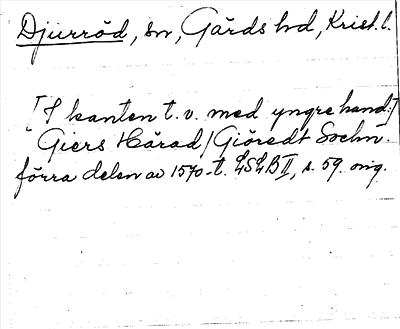 Djurröd, sn, Gärds hd, Krist. l.
[I kanten t.v. med yngre hand:]
Giers Härad / Giöredt Sochn.
förra delen av 1570-t. LSLB II, s. 59. orig.